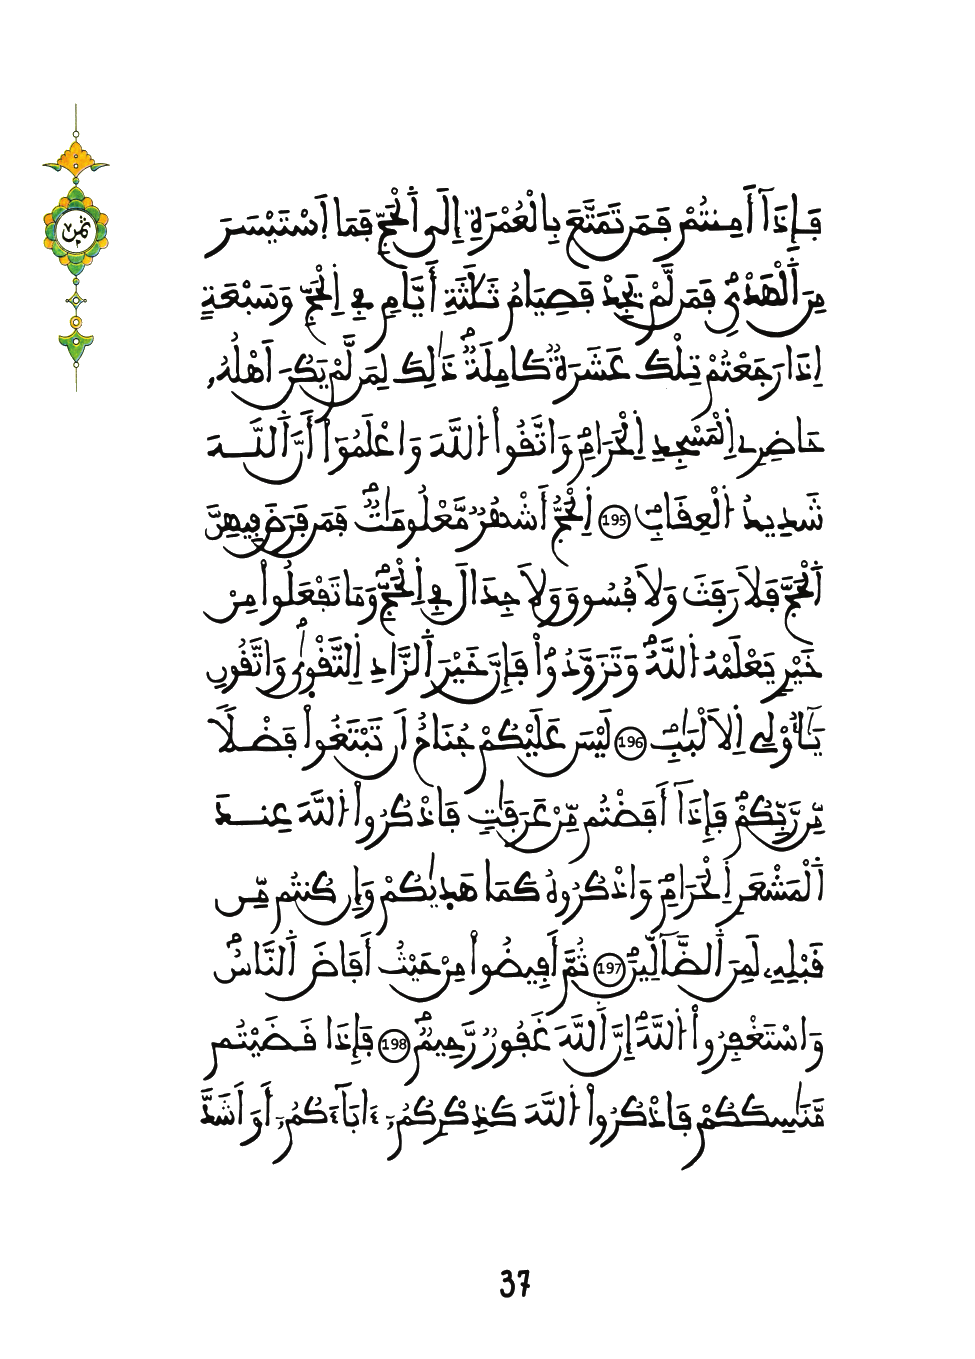 ثمن
فَإِذَآ أَمِنتُمْ فَمَن تَمَتَّعَ بِالْعُمْرَةِ إِلَى اَ۬لْحَجِّ فَمَا اَ۪سْتَيْسَرَ
مِنَ اَ۬لْهَدْيِۖ فَمَن لَّمْ يَجِدْ فَصِيَامُ ثَلَٰثَةِ أَيَّامٖ فِے اِ۬لْحَجِّ وَسَبْعَةٍ
اِذَا رَجَعْتُمْۖ تِلْكَ عَشَرَةٞ كَامِلَةٞۖ ذَٰلِكَ لِمَن لَّمْ يَكُنَ اَهْلُهُۥ
حَاضِرِے اِ۬لْمَسْجِدِ اِ۬لْحَرَامِۖ وَاتَّقُوا۟ اُ۬للَّهَ وَاعْلَمُوٓا۟ أَنَّ اَ۬للَّهَ
شَدِيدُ اُ۬لْعِقَابِۖ 195 اِ۬لْحَجُّ أَشْهُرٞ مَّعْلُومَٰتٞۖ فَمَن فَرَضَ فِيهِنَّ
اَ۬لْحَجَّ فَلَا رَفَثَ وَلَا فُسُوقَ وَلَا جِدَالَ فِے اِ۬لْحَجِّۖ وَمَا تَفْعَلُوا۟ مِنْ
خَيْرٖ يَعْلَمْهُ اُ۬للَّهُۖ وَتَزَوَّدُوا۟ فَإِنَّ خَيْرَ اَ۬لزَّادِ اِ۬لتَّقْوٜىٰۖ وَاتَّقُونِ
يَٰٓأُوْلِے اِ۬لَالْبَٰبِۖ 196 لَيْسَ عَلَيْكُمْ جُنَاحٌ اَن تَبْتَغُوا۟ فَضْلاٗ
مِّن رَّبِّكُمْۖ فَإِذَآ أَفَضْتُم مِّنْ عَرَفَٰتٖ فَاذْكُرُوا۟ اُ۬للَّهَ عِندَ
اَ۬لْمَشْعَرِ اِ۬لْحَرَامِۖ وَاذْكُرُوهُ كَمَا هَدٜىٰكُمْ وَإِن كُنتُم مِّن
قَبْلِهِۦ لَمِنَ اَ۬لضَّآلِّينَۖ 197 ثُمَّ أَفِيضُوا۟ مِنْ حَيْثُ أَفَاضَ اَ۬لنَّاسُۖ
وَاسْتَغْفِرُوا۟ اُ۬للَّهَۖ إِنَّ اَ۬للَّهَ غَفُورٞ رَّحِيمٞۖ 198 فَإِذَا قَضَيْتُم
مَّنَٰسِكَكُمْ فَاذْكُرُوا۟ اُ۬للَّهَ كَذِكْرِكُمُۥٓ ءَابَآءَكُمُۥٓ أَوَ اَشَدَّ
37